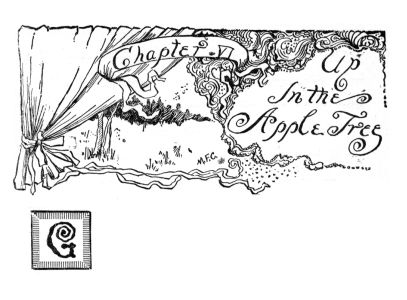 Chapter VI
Up
In the
Apple Tree
M.F.C.
G